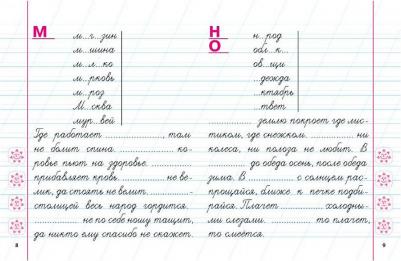 М
м...г...зин
м...шина
м...л...ко
м...рковь
м...роз
М...сква
мур...вей
Где работает ............, там
не болит спина. ............ ко-
ровье пьют на здоровье. ............
прибавляет кровь. ............ не ве-
лик, да стоять не велит. ............ -
столицей весь народ гордится.
............ не по себе ношу тащит,
да никто ему спасибо не скажет.
8
Н
О
н...род
обл...к...
ов...щи
...дежда
...ктябрь
...твет
............ землю покроет где лис-
тиком, где снежком. ............ ни
колеса, ни полоза не любит. В
............ до обеда осень, после обеда
зима. В ............ с солнцем рас-
прощайся, ближе к печке подби-
райся. Плачет ............ холодны-
ми слезами. ............ то плачет,
то смеётся.
9